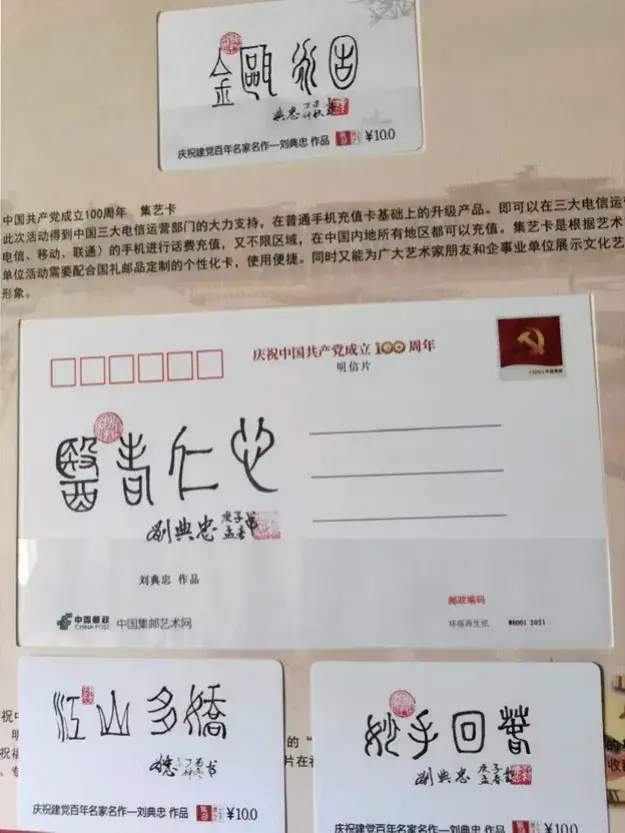 金甌永固
庆祝建党百年名家名作—刘典忠 作品 ¥10.0
中国共产党成立100周年 集艺卡
此次活动得到中国三大电信运营部门的大力支持，在普通手机充值卡基础上的升级产品。即可以在三大电信运营
电信、移动、联通）的手机进行话费充值，又不限区域，在中国内地所有地区都可以充值。集艺卡是根据艺术
单位活动需要配合国礼邮品定制的个性化卡，使用便捷。同时又能为广大艺术家朋友和企事业单位展示文化艺
形象。
庆祝中国共产党成立100周年
明信片
醫者仁心
劉典忠 庚子 孟春
刘典忠 作品
中国邮政
CHINA POST
中国集邮艺术网
邮政编码
环保再生纸 W6001 2021
江山多嬌
庆祝建党百年名家名作—刘典忠 作品 ¥10.0
妙手回春
劉典忠 庚子 孟春
庆祝建党百年名家名作—刘典忠 作品 ¥10.0